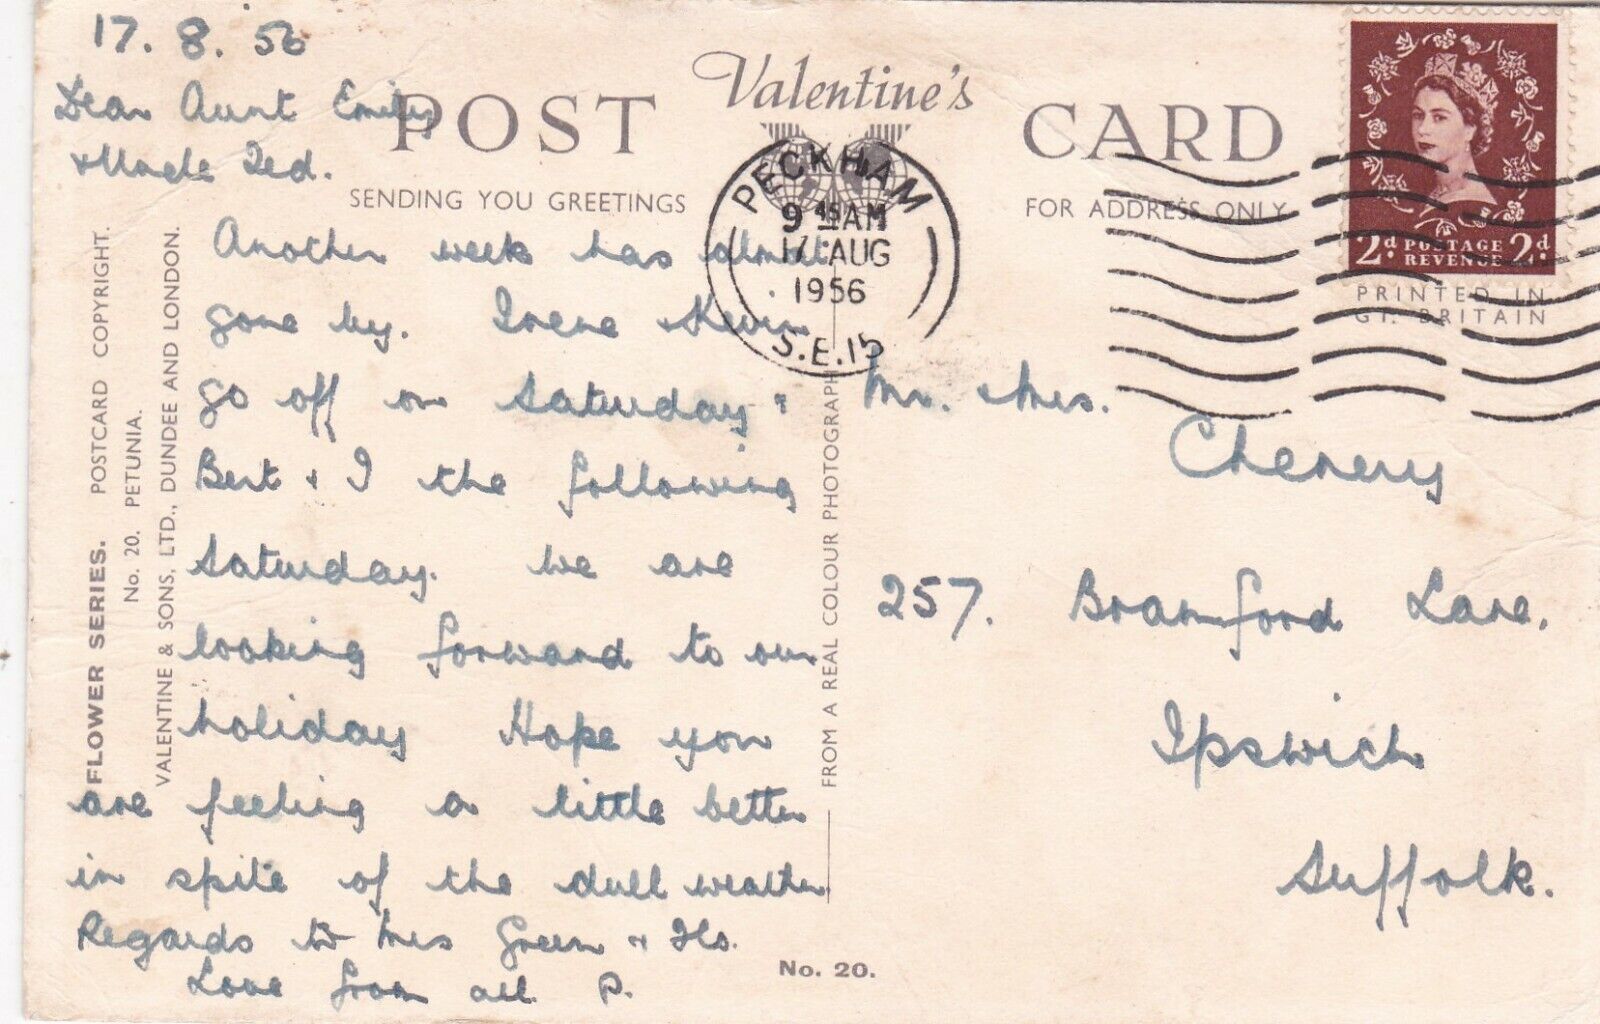 17. 8. 56
Dear Aunt Emily
& Uncle Ted.
Another week has almost
gone by. Irene & Kevin
go off on Saturday &
Bert & I the following
Saturday. We are
looking forward to our
holiday Hope you
are feeling a little better
in spite of the dull weather
Regards to Mrs Green & Flo.
Love from all P.
POST CARD
Valentine's
SENDING YOU GREETINGS
FOR ADDRESS ONLY
PECKHAM
9 45 AM
17 AUG
1956
S.E.15
2d. POSTAGE 2d.
REVENUE
PRINTED IN
GT. BRITAIN
Mr. & Mrs.
Chenery
257. Bramford Lane.
Ipswich
Suffolk.
FLOWER SERIES. POSTCARD COPYRIGHT.
No. 20. PETUNIA.
VALENTINE & SONS, LTD., DUNDEE AND LONDON.
FROM A REAL COLOUR PHOTOGRAPH
No. 20.